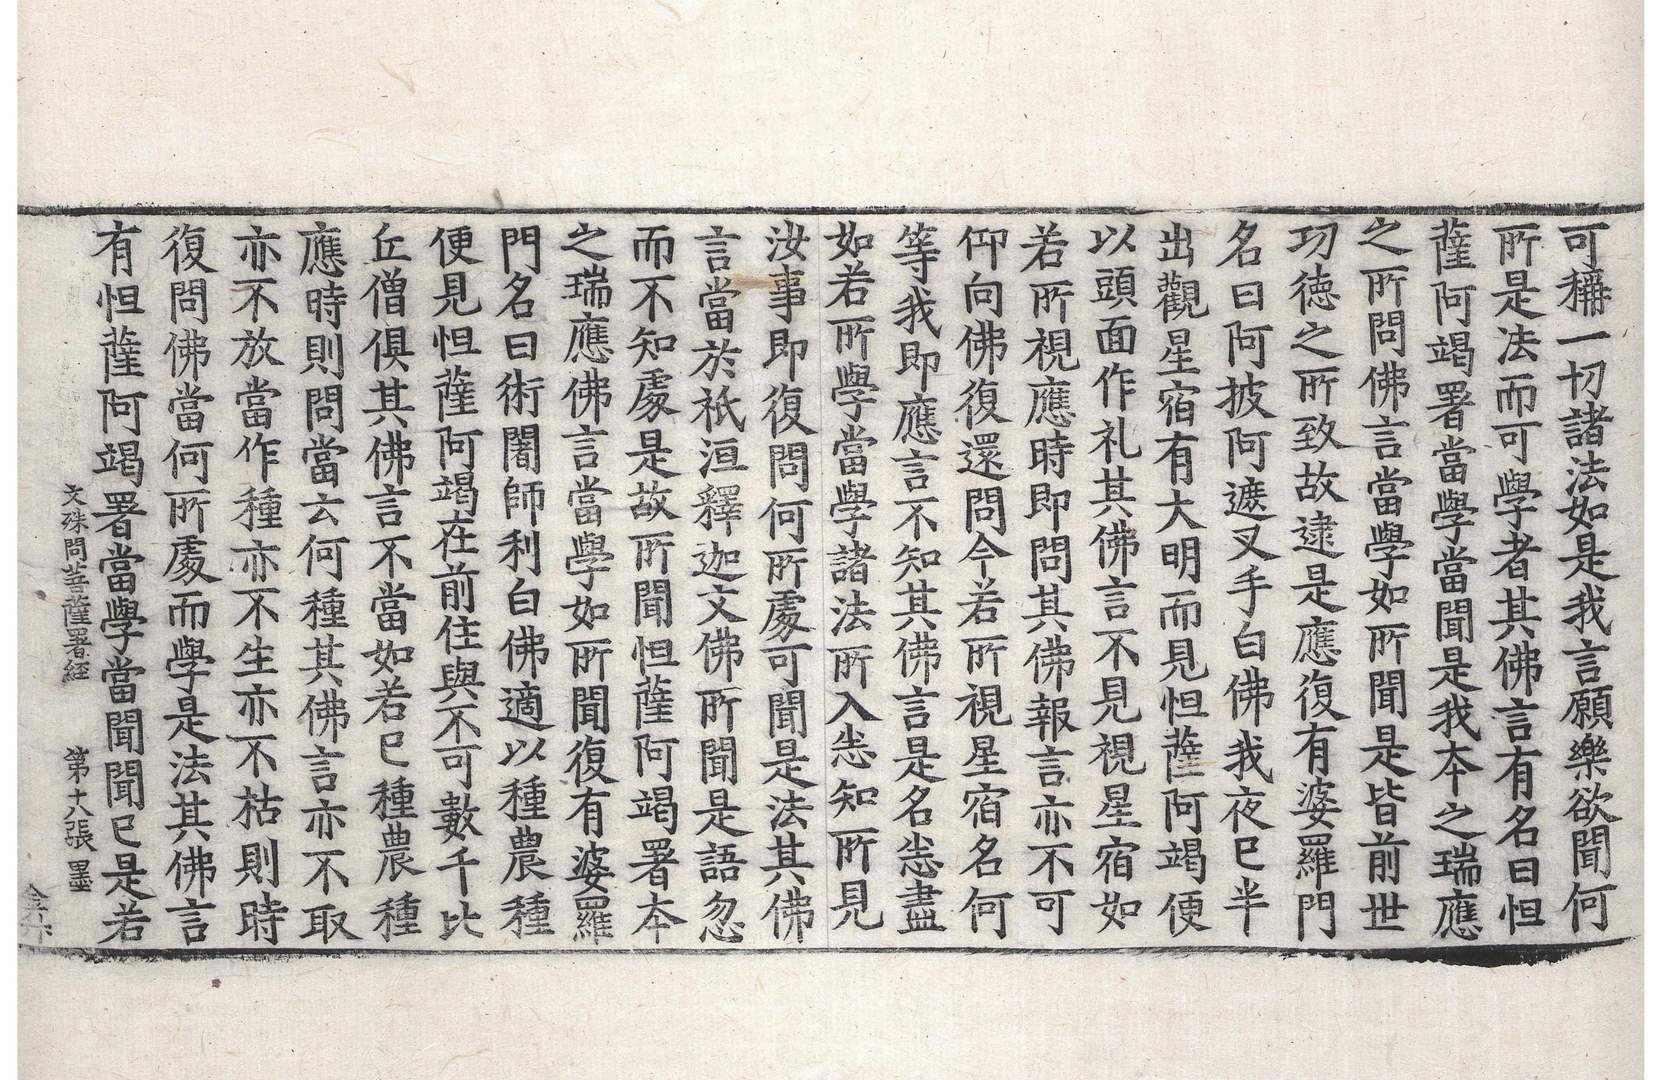 可稱一切諸法如是我言願樂欲聞何
所是法而可學者其佛言有名曰怛
薩阿竭署當學當聞是我本之瑞應
之所問佛言當學如所聞是皆前世
功德之所致故逮是應復有婆羅門
名曰阿披阿遮叉手白佛我夜已半
出觀星宿有大明而見怛薩阿竭便
以頭面作礼其佛言不見視星宿如
若所視應時即問其佛報言亦不可
仰向佛復還問今若所視星宿名何
等我即應言不知其佛言是名悉盡
如若所學當學諸法所入悉知所見
汝事即復問何所處可聞是法其佛
言當於祇洹釋迦文佛所聞是語忽
而不知處是故所聞怛薩阿竭署本
之瑞應佛言當學如所聞復有婆羅
門名曰術闍師利白佛適以種農種
便見怛薩阿竭在前住與不可數千比
丘僧俱其佛言不當如若已種農種
應時則問當云何種其佛言亦不取
亦不放當作種亦不生亦不枯則時
復問佛當何所處而學是法其佛言
有怛薩阿竭署當學當聞聞已是若
文殊問菩薩署經 第十八張 墨